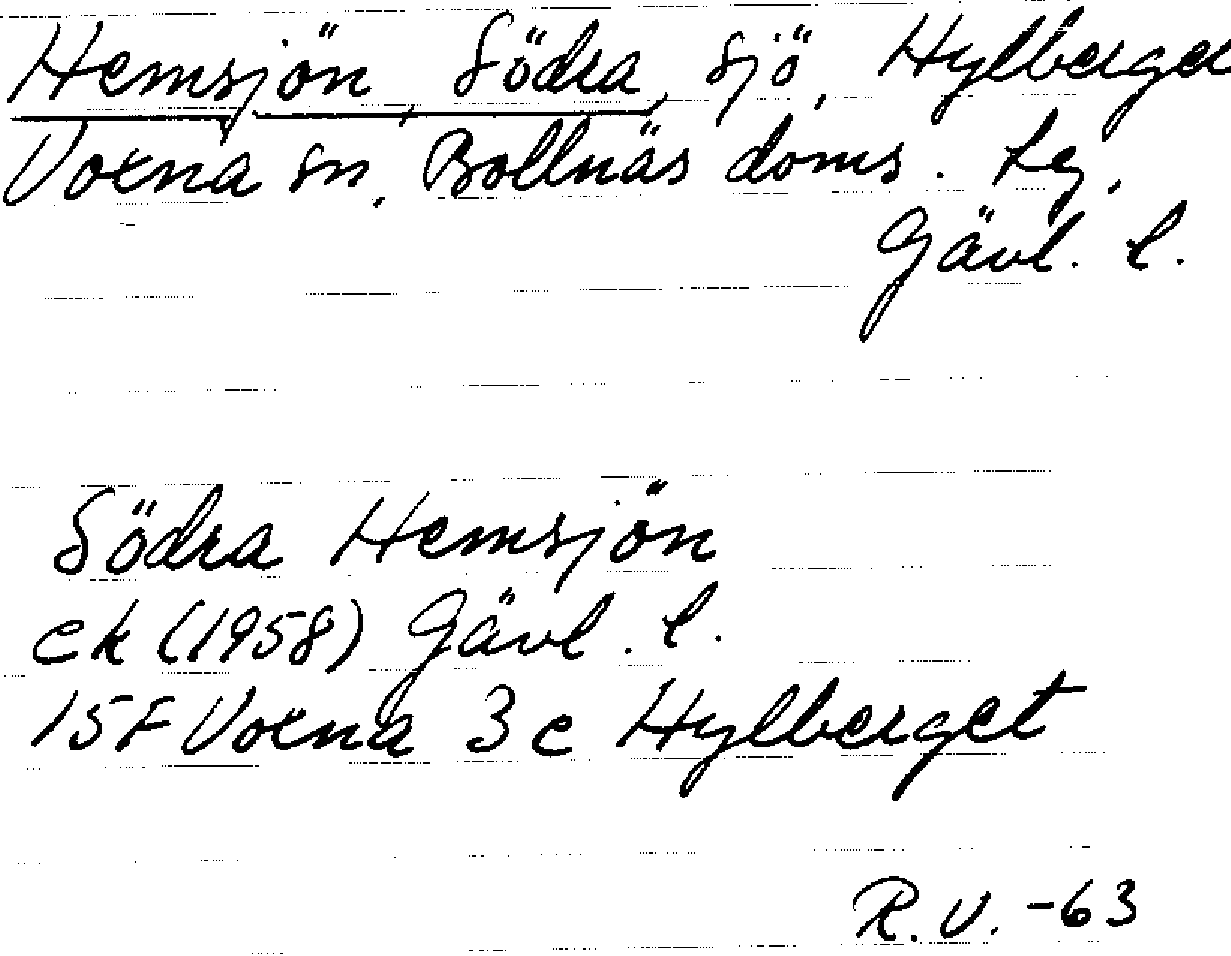 Hemsjön, Södra, sjö, Hylberget
Voxna sn, Bollnäs doms. tg,
Gävl. l.
Södra Hemsjön
ek (1958) Gävl. l.
15F Voxna 3c Hylberget
R.V. -63